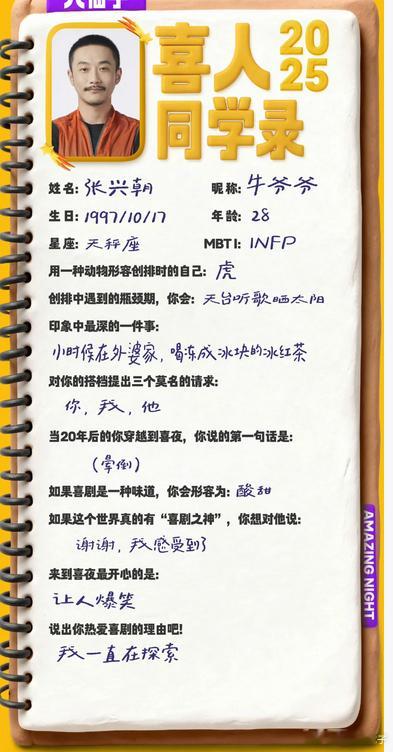 喜人 2025
同学录
姓名: 张兴朝 昵称: 牛爷爷
生日: 1997/10/17 年龄: 28
星座: 天秤座 MBTI: INFP
用一种动物形容创排时的自己: 虎
创排中遇到的瓶颈期，你会: 天台听歌晒太阳
印象中最深的一件事:
小时候在外婆家，喝冻成冰块的冰红茶
对你的搭档提出三个莫名的请求:
你，我，他
当20年后的你穿越到喜夜，你说的第一句话是:
（晕倒）
如果喜剧是一种味道，你会形容为: 酸甜
如果这个世界真的有“喜剧之神”，你想对他说:
谢谢，我感受到了
来到喜夜最开心的是:
让人爆笑
说出你热爱喜剧的理由吧!
我一直在探索
AMAZING NIGHT